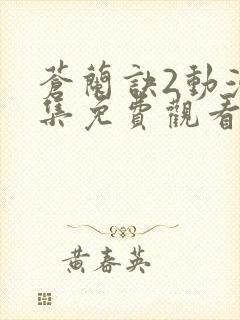 蒼蘭訣2動
集免費觀看
黃春英